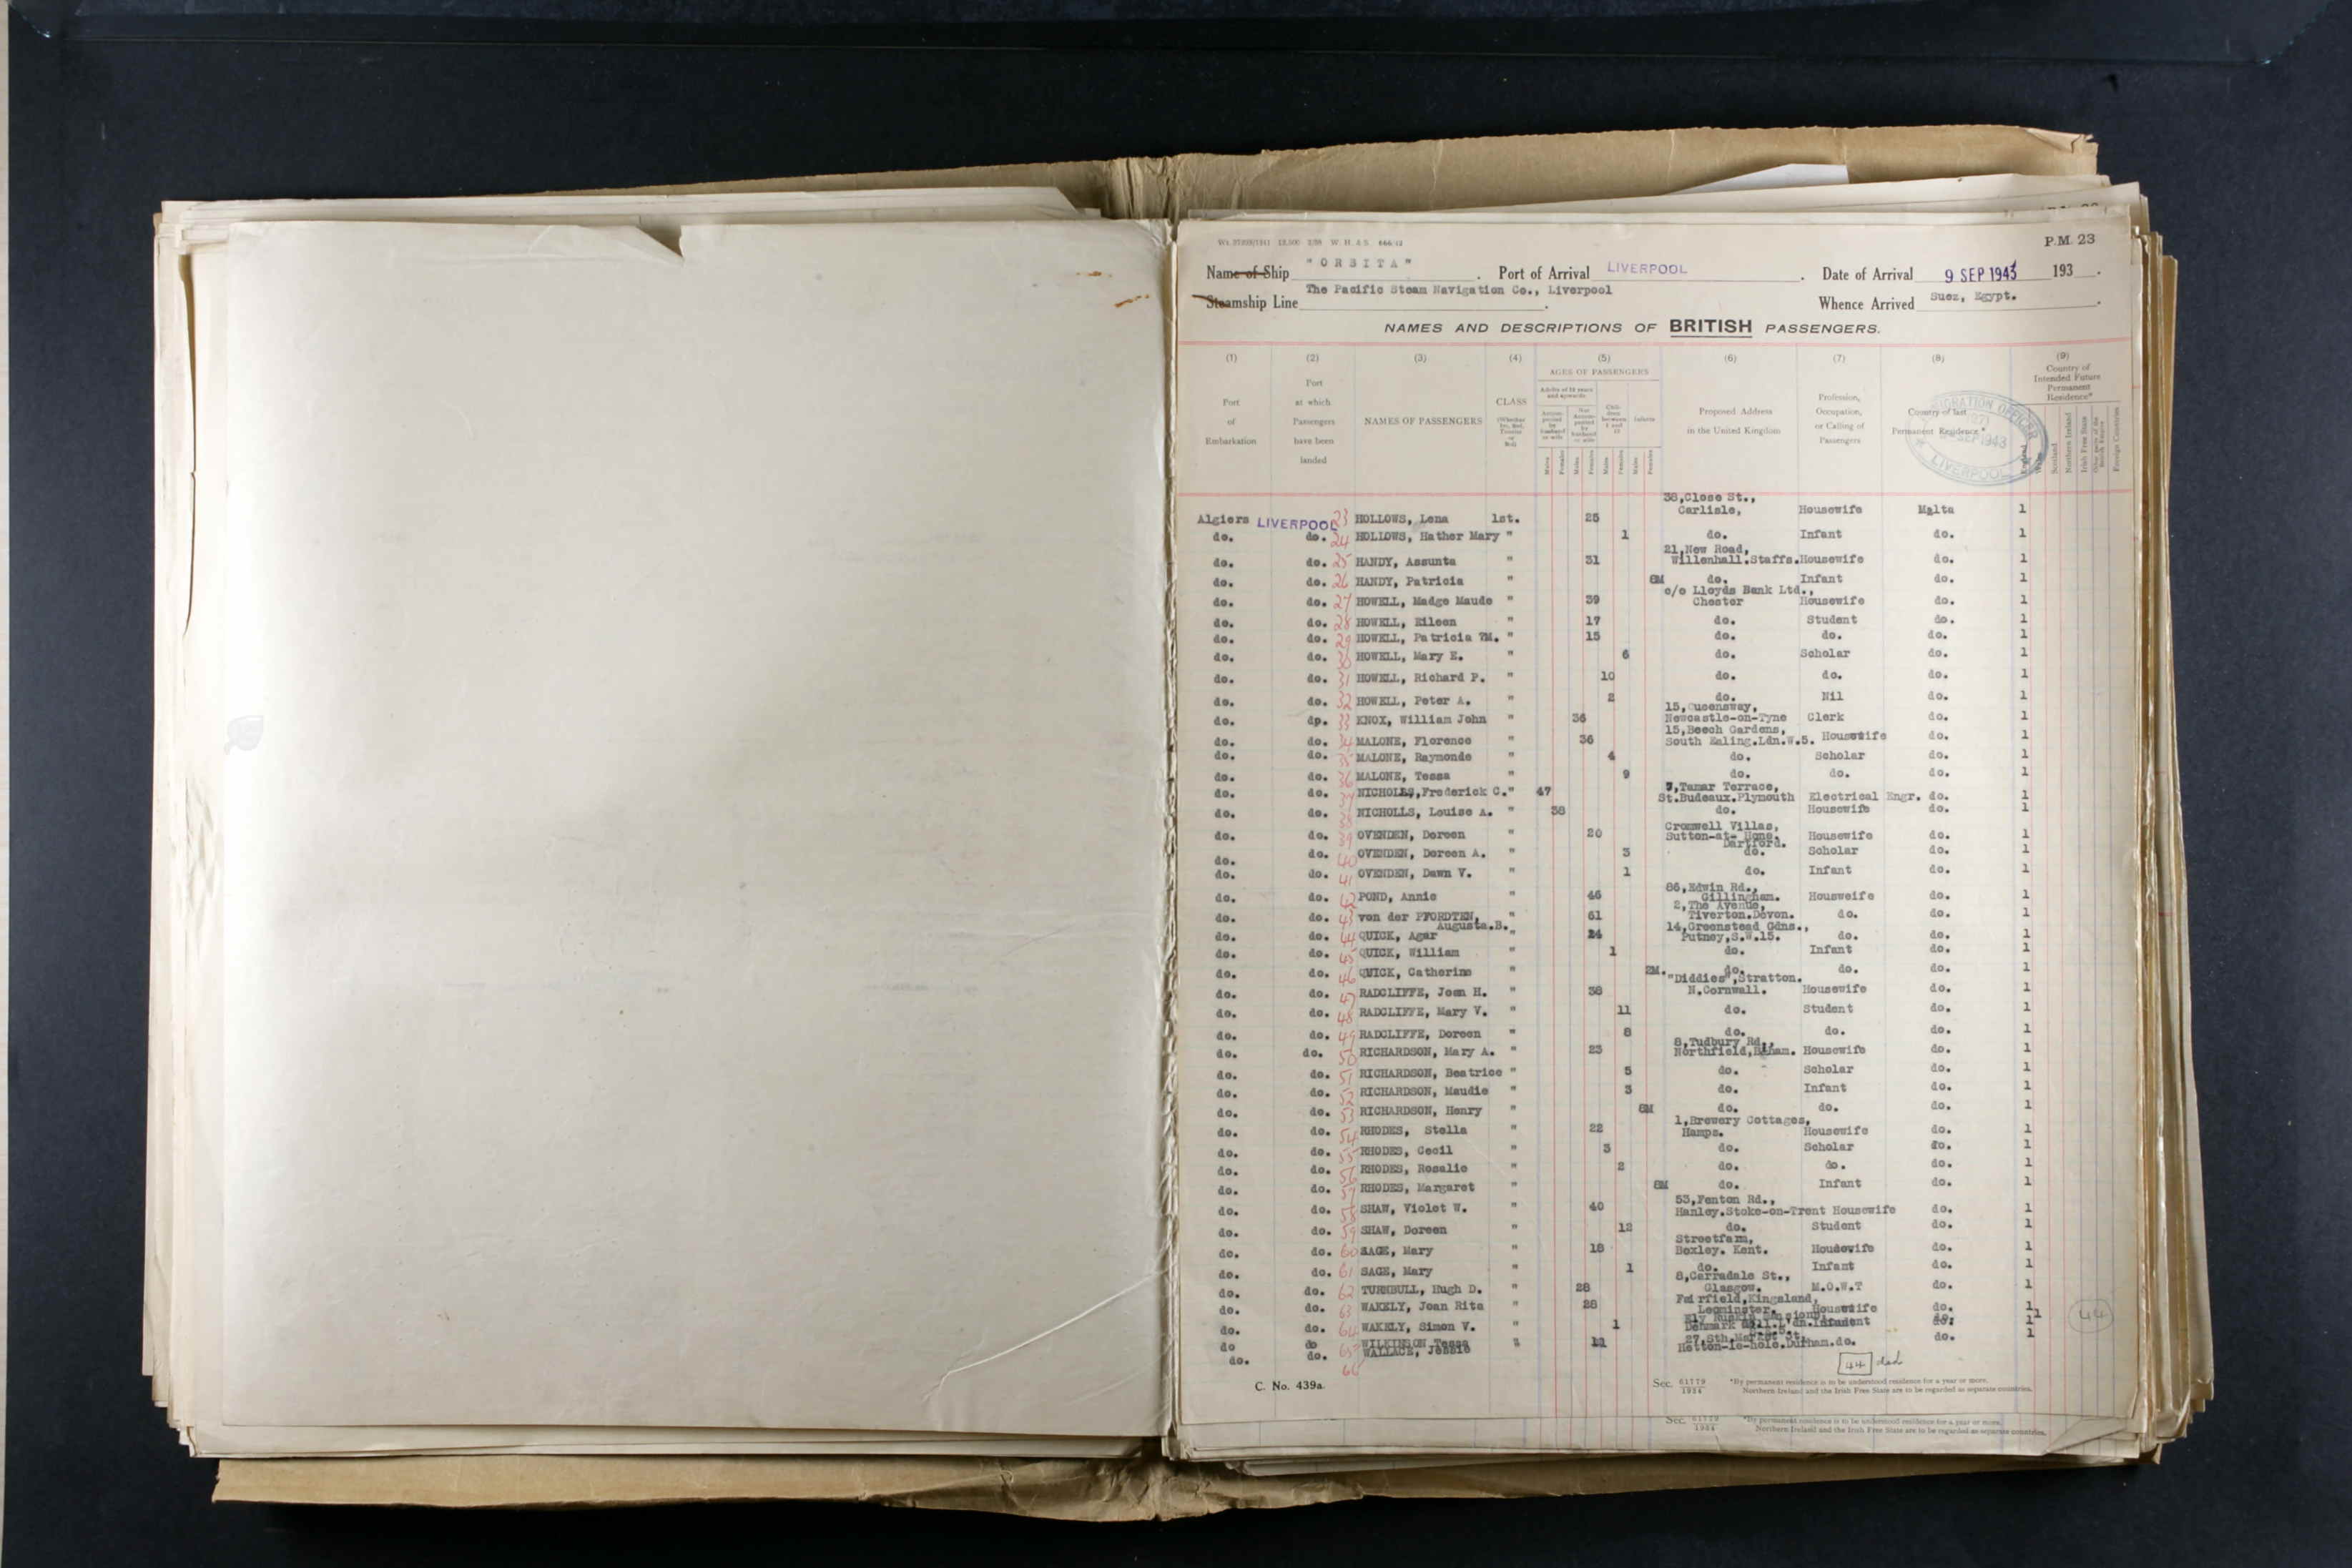 P.M. 23
Name of Ship "ORBITA" . Port of Arrival LIVERPOOL . Date of Arrival 9 SEP 1943 193 .
Steamship Line The Pacific Steam Navigation Co., Liverpool . Whence Arrived Suez, Egypt. .
NAMES AND DESCRIPTIONS OF BRITISH PASSENGERS.
(1) (2) (3) (4) (5) (6) (7) (8) (9)
Port of Embarkation
Port at which Passengers have been landed
NAMES OF PASSENGERS
CLASS
AGES OF PASSENGERS
Adults of 12 years and upwards
Infants
Males Females Males Females Males Females Males Females
Proposed Address in the United Kingdom
Profession, Occupation, or Calling of Passengers
Country of last Permanent Residence*
Country of Intended Future Permanent Residence*
Scotland Northern Ireland Irish Free State Foreign Countries
IMMIGRATION OFFICER
SEP 1943
LIVERPOOL
38,Close St.,
Algiers LIVERPOOL 23 HOLLOWS, Lena 1st. 25 Carlisle, Housewife Malta 1
do. do. 24 HOLLOWS, Hather Mary " 1 do. Infant do. 1
21,New Road,
do. do. 25 HANDY, Assunta " 31 Willenhall.Staffs. Housewife do. 1
do. do. 26 HANDY, Patricia " 8M do. Infant do. 1
c/o Lloyds Bank Ltd.,
do. do. 27 HOWELL, Madge Maude " 39 Chester Housewife do. 1
do. do. 28 HOWELL, Eileen " 17 do. Student do. 1
do. do. 29 HOWELL, Patricia ?M. " 15 do. do. do. 1
do. do. 30 HOWELL, Mary E. " 6 do. Scholar do. 1
do. do. 31 HOWELL, Richard P. " 10 do. do. do. 1
do. do. 32 HOWELL, Peter A. " 2 do. Nil do. 1
15,Queensway,
do. dp. 33 KNOX, William John " 36 Newcastle-on-Tyne Clerk do. 1
15,Beech Gardens,
do. do. 34 MALONE, Florence " 36 South Ealing.Ldn.W.5. Housewife do. 1
do. do. 35 MALONE, Raymonde " 4 do. Scholar do. 1
do. do. 36 MALONE, Tessa " 9 do. do. do. 1
7,Tamar Terrace,
do. do. 37 NICHOLLS,Frederick C." 47 St.Budeaux.Plymouth Electrical Engr. do. 1
do. do. 38 NICHOLLS, Louise A. " 38 do. Housewife do. 1
Cromwell Villas,
do. do. 39 OVENDEN, Doreen " 20 Sutton-at- Hone. Housewife do. 1
Dartford.
do. do. 40 OVENDEN, Doreen A. " 3 do. Scholar do. 1
do. do. 41 OVENDEN, Dawn V. " 1 do. Infant do. 1
86,Edwin Rd.,
do. do. 42 POND, Annie " 46 Gillingham. Housweife do. 1
2,The Avenue,
do. do. 43 von der PFORDTEN, " 61 Tiverton.Devon. do. do. 1
Augusta.B. 14,Greenstead Gdns.,
do. do. 44 QUICK, Agar " 24 Putney,S.W.15. do. do. 1
do. do. 45 QUICK, William 1 do. Infant do. 1
do. do. 46 QUICK, Catherine " 2M. do. do. do. 1
"Diddies",Stratton.
do. do. 47 RADCLIFFE, Joan H. " 38 N.Cornwall. Housewife do. 1
do. do. 48 RADCLIFFE, Mary V. " 11 do. Student do. 1
do. do. 49 RADCLIFFE, Doreen " 8 do. do. do. 1
8,Tudbury Rd.,
do. do. 50 RICHARDSON, Mary A. " 23 Northfield,Bham. Housewife do. 1
do. do. 51 RICHARDSON, Beatrice " 5 do. Scholar do. 1
do. do. 52 RICHARDSON, Maudie " 3 do. Infant do. 1
do. do. 53 RICHARDSON, Henry " 6M do. do. do. 1
1,Brewery Cottages,
do. do. 54 RHODES, Stella " 22 Hamps. Housewife do. 1
do. do. 55 RHODES, Cecil " 3 do. Scholar do. 1
do. do. 56 RHODES, Rosalie " 2 do. do. do. 1
do. do. 57 RHODES, Margaret " 8M do. Infant do. 1
53,Fenton Rd.,
do. do. 58 SHAW, Violet W. " 40 Hanley.Stoke-on-Trent Housewife do. 1
do. do. 59 SHAW, Doreen " 12 do. Student do. 1
Streetfarm,
do. do. 60 SAGE, Mary " 18 Boxley. Kent. Housewife do. 1
do. do. 61 SAGE, Mary 1 do. Infant do. 1
8,Carradale St.,
do. do. 62 TURNBULL, Hugh D. " 28 Glasgow. M.O.W.T do. 1
Fairfield,Kingsland,
do. do. 63 WAKELY, Joan Rita " 28 Leominster. Housewife do. 1
do. do. 64 WAKELY, Simon V. " 1 1
do do 65 WILKINSON Tessa " 27,Sth.Market St. do. 1
do. do. 66 WALLACE, Jessie Hetton-le-hole.Durham. do.
44
44
C. No. 439a.
Sec. 61779 1934
*By permanent residence is to be understood residence for a year or more.
Northern Ireland and the Irish Free State are to be regarded as separate countries.
*By permanent residence is to be understood residence for a year or more.
Northern Ireland and the Irish Free State are to be regarded as separate countries.